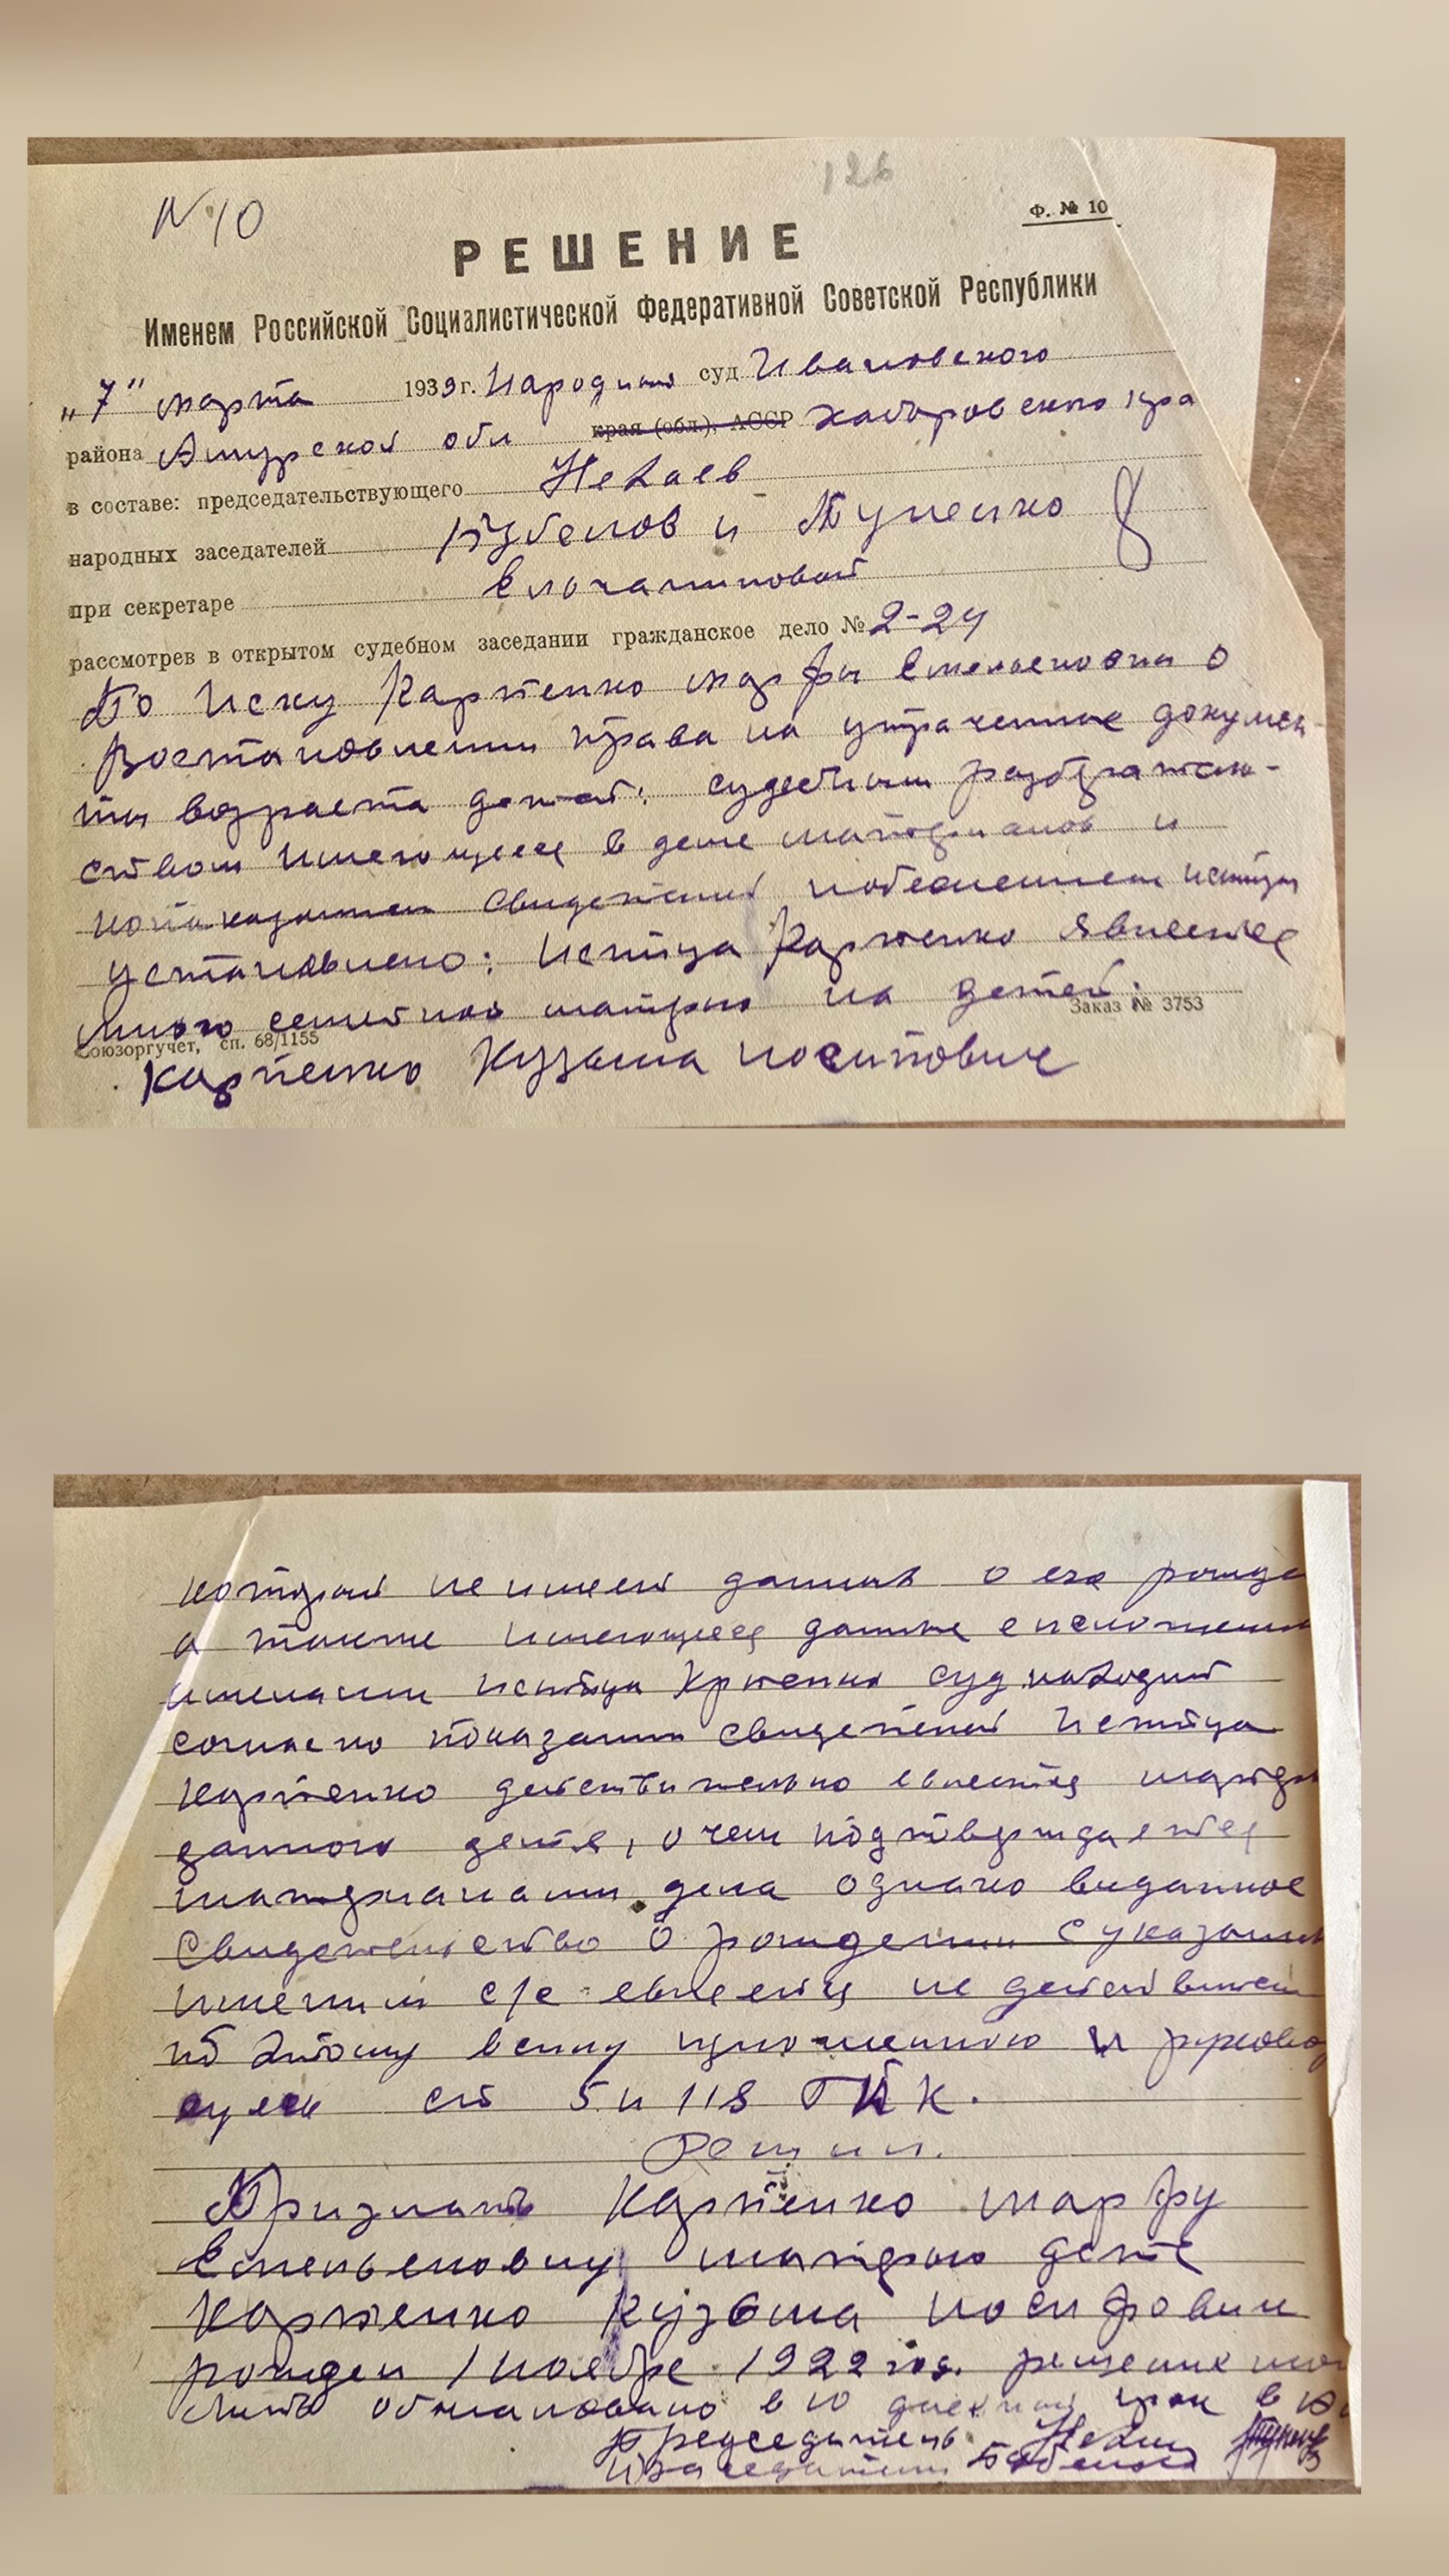 126
N 10
Ф. № 10
РЕШЕНИЕ
Именем Российской Социалистической Федеративной Советской Республики
„7" марта 1939 г. Народный суд Ивановского
района Амурской обл края (обл.), АССР Хабаровского кра
в составе: председательствующего Нехаев
народных заседателей и
при секретаре
рассмотрев в открытом судебном заседании гражданское дело № 2-24
По Иску Карпенко марфы Емельеновны о
Востановлении права на утраченные докумен-
ты возраста детей: судебным разбратель-
ством имеющееся в деле материалов и
показанием свидетелей истцы
установлено: Истца Карпенко является
много семейной матерью на детей.
Союзоргучет, сп. 68/1155 Заказ № 3753
Карпенко Кузьма иосипович
который не имеет данных о его рожде
а также имеющееся данные
истца Крпенко суд находит
согласно показания свидетелей Истца
Карпенко действительно евлеется
данного детя, о чем подтверждается
материалами дела однако виданное
Свидетельство о рождении с указаним
с/с евлеется не действител
по этому в силу изложенного и руковод
суясь ст 5 и 118 ГПК.
Решил.
Признать Карпенко марфу
Емельеновну матерью детя
Карпенко Кузьма иосифович
рожден 1 ноября 1922 год. решение мо
обжаловано в 10 дневный срок в
Председатель